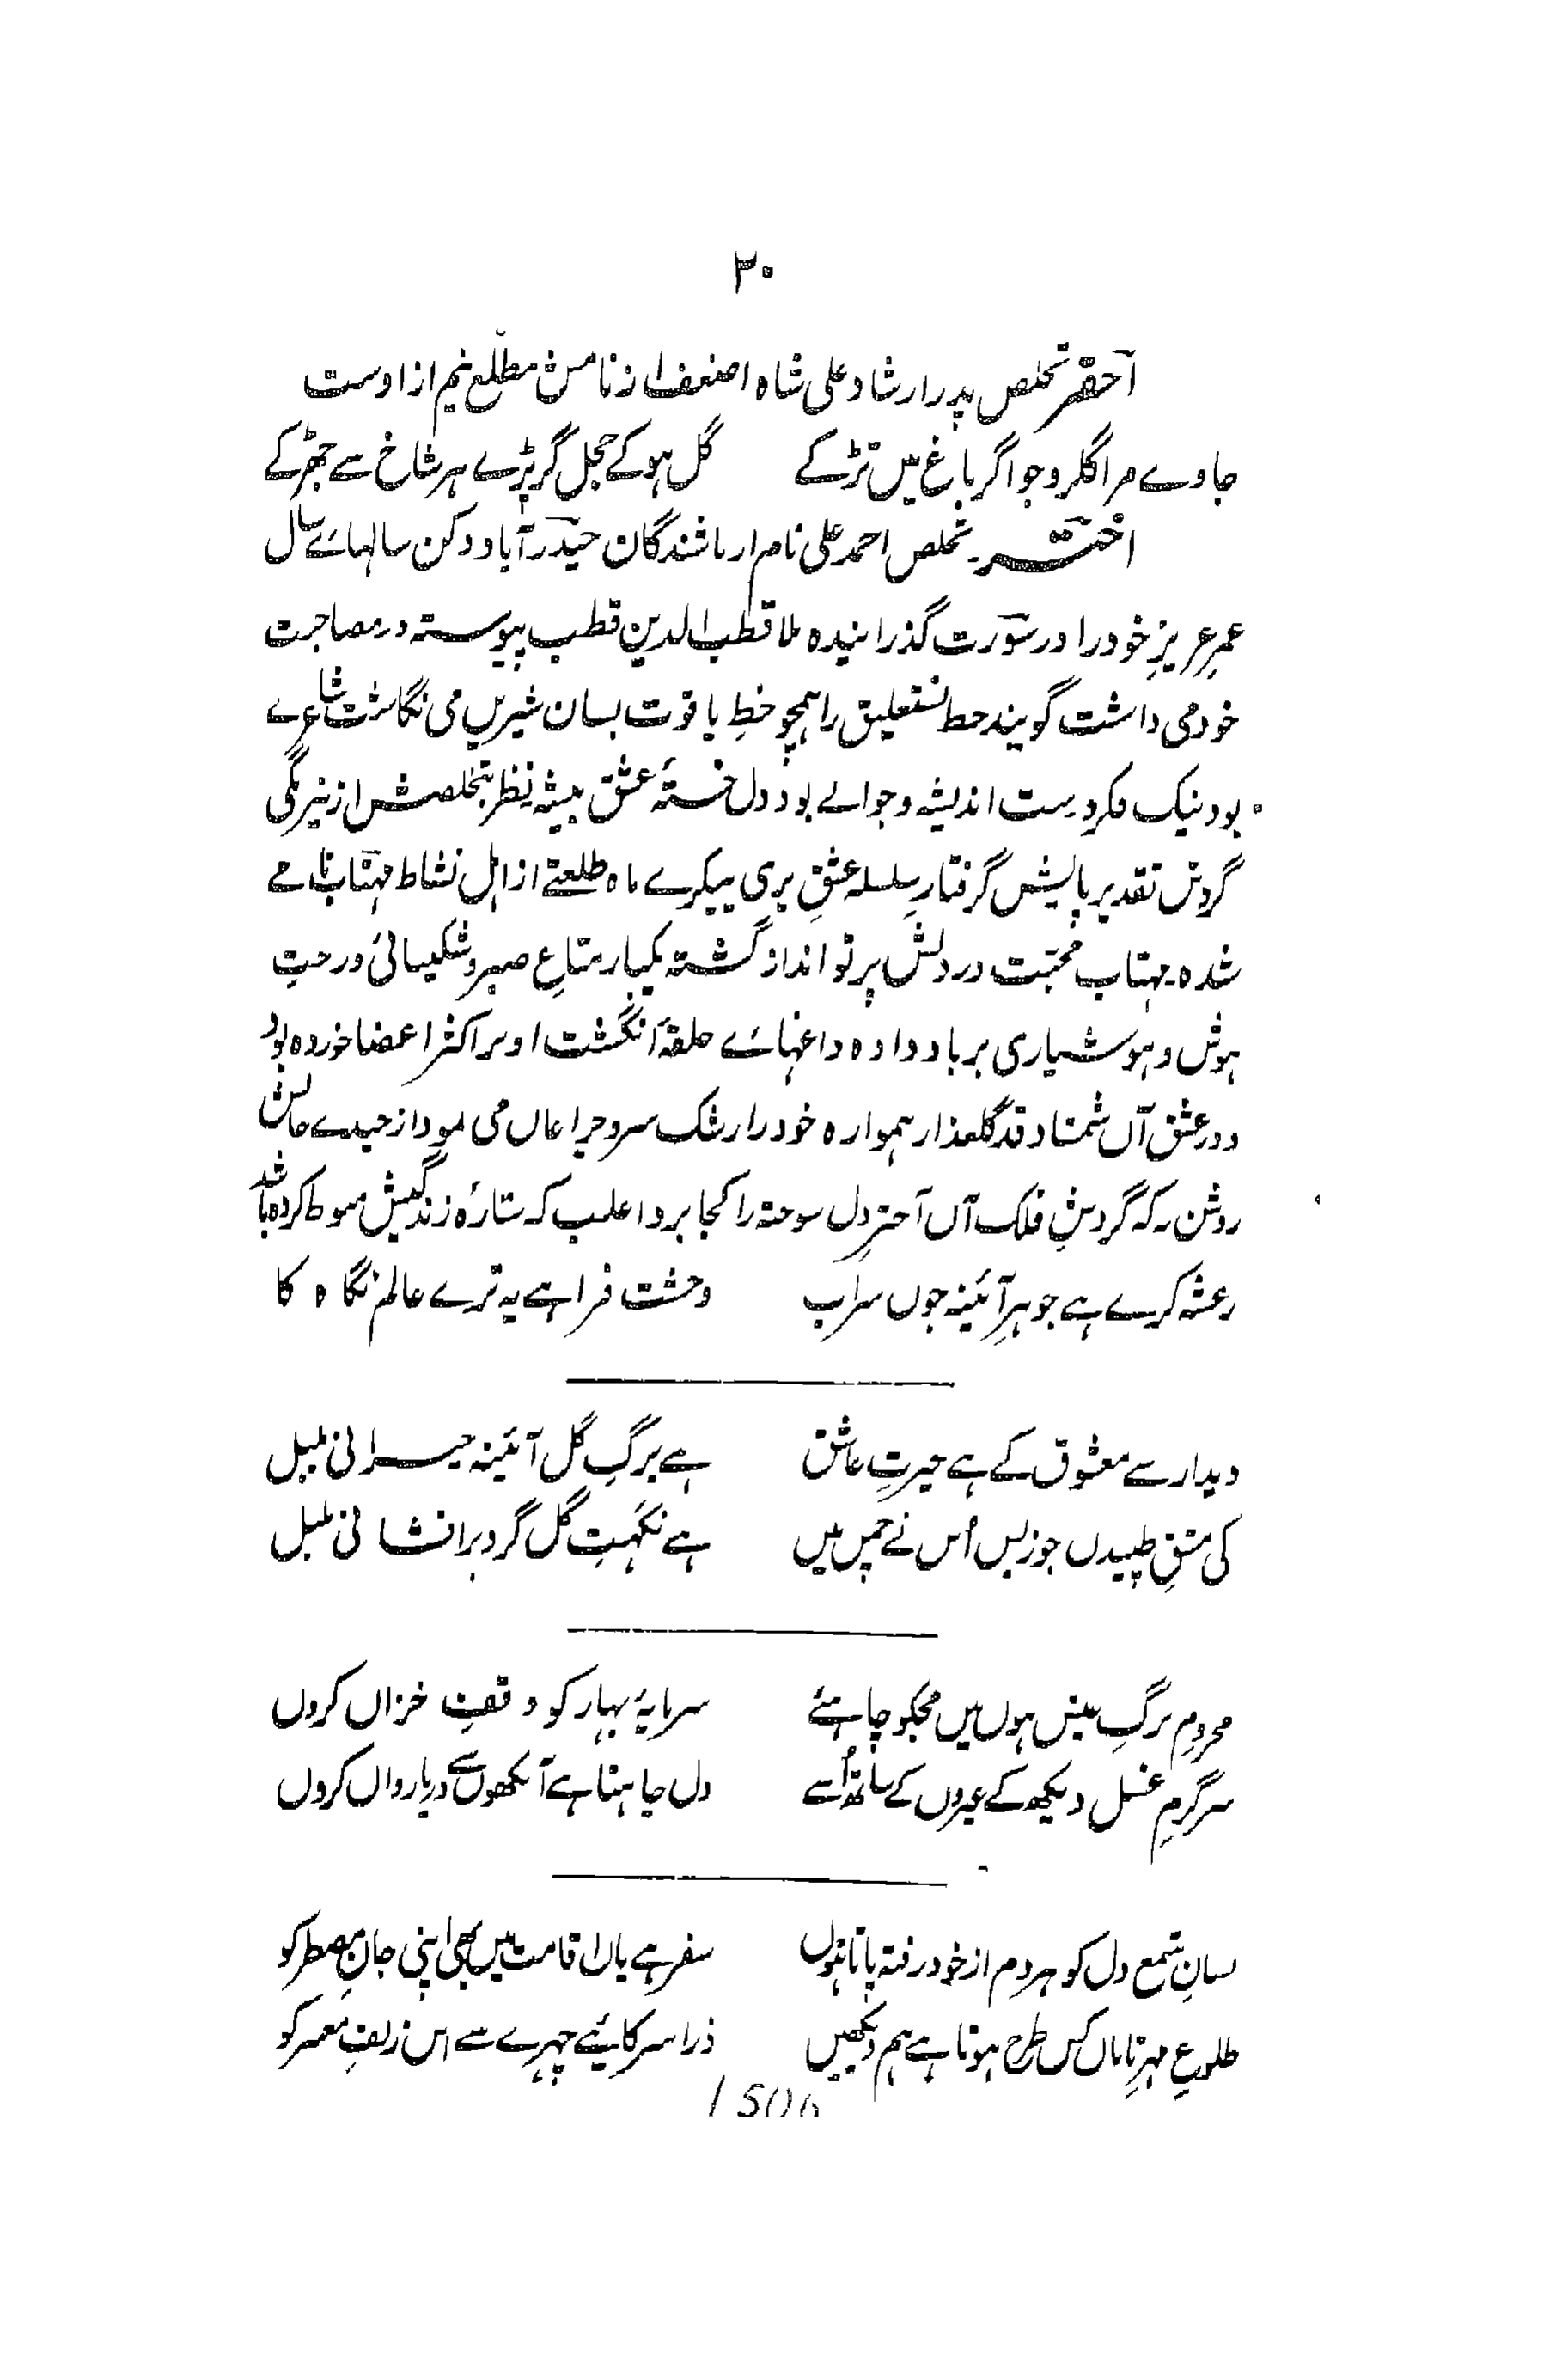 ۲۰
احقر تخلص پدر ارشاد علی شاہ اصغف از نامش مطلع نیم از اوست
جاوے مرا گلرو جو اگر باغ میں تڑکے گل ہو کے خجل گر پڑے ہر شاخ سے جھڑ کے
اختر۔ تخلص احمد علی نام از باشندگان حیدر آباد دکن سالہائے سال
عمرِ عزیزِ خود را در سورت گذرانیدہ ملا قطب الدین قطب پیوستہ در مصاحبت
خود می داشت گویند خط نستعلیق را ہمچو خطِ یاقوت لبان شیریں می نگاشت شاعرے
بود نیک فکر درست اندیشہ و جوانے بود دل خستۂ عشق پیشہ نظر بتخلصش از نیرنگی
گردش تقدیر پایش گرفتارِ سلسلہ عشقِ پری پیکرے ماہ طلعتے از اہل نشاط مہتاب نامے
شدہ۔ مہتاب محبت در دلش پرتو انداز گشتہ یکبار متاعِ صبر و شکیبائی و رختِ
ہوش و ہوشیاری برباد دادہ داغہائے حلقۂ انگشت او بر اکثر اعضا خوردہ بود
و در عشق آں شمشاد قد گلعذار ہموارہ خود را رشک سرو چراغاں می نمود از چندے حالش
روشن نہ کہ گردشِ فلک آں اخترِ دل سوختہ را کجا برد اغلب کہ ستارۂ زندگیش ہبوط کردہ باشد
رعشہ کرے ہے جوہرِ آئینہ جوں سراب وحشت فزا ہے یہ ترے عالم نگاہ کا
دیدار سے معشوق کے ہے حیرتِ عاشق ہے برگِ گل آئینہ حیرانی بلبل
کی مشقِ طپیدں جو زبس اُس نے چمن میں ہے نکہتِ گل گرد پرافشانی بلبل
محرومِ برگِ عیش ہوں میں مجکو چاہئے سرمایۂ بہار کو وقفِ خزاں کروں
سرگرمِ غسل دیکھ کے غیروں کے ساتھ اُسے دل چاہتا ہے آنکھوں سے دریا رواں کروں
بسانِ شمع دل کو ہر دم از خود رفتہ پاتا ہوں سفر ہے یاں اقامت میں بھی اپنی جانِ مضطر کو
طلوعِ مہرِ تاباں کس طرح ہوتا ہے ہم دیکھیں ذرا سرکائیے چہرے سے اس زلفِ معمبر کو
1506